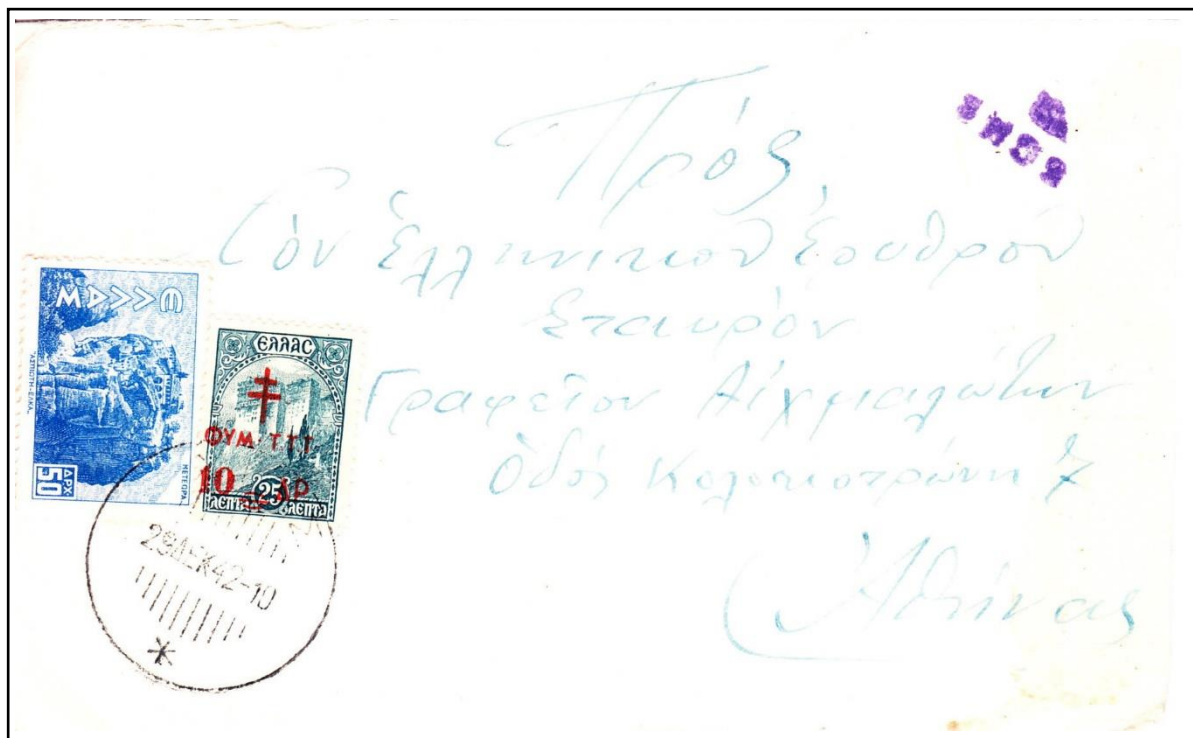 Πρός
Τὸν Ἑλληνικὸν Ἐρυθρὸν
Σταυρὸν
Γραφεῖον Αἰχμαλώτων
Ὁδός Κολοκοτρώνη 7
Ἀθήνας
ΕΛΛΑΣ
ΑΣΠΙΩΤΗ-ΕΛΚΑ
ΜΕΤΕΩΡΑ
50 ΔΡΧ
ΕΛΛΑΣ
ΦΥΜ·ΤΤΤ
10 ΔΡ
ΛΕΠΤΑ 25 ΛΕΠΤΑ
29ΔΕΚ42-10